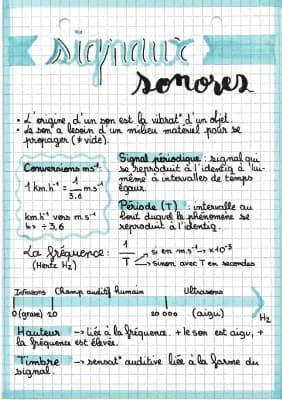 signaux
sonores
• L'origine d'un son est la vibrat° d'un objet.
• Le son a besoin d'un milieu matériel pour se
propager (≠ vide).
Conversions ms⁻¹
1 km.h⁻¹ = 1/3,6 m.s⁻¹
km.h⁻¹ vers m.s⁻¹
↳ ÷ 3,6
Signal périodique : signal qui
se reproduit à l'identiq à lui-
même à intervalles de temps
égaux.
Période (T) : intervalle au
bout duquel le phénomène se
reproduit à l'identiq.
La fréquence :
(Hertz Hz)
1/T
si en m.s⁻¹ → ×10⁻³
sinon avec T en secondes
Infrasons Champ auditif humain Ultrasons
0 (grave) 20 20 000 (aigu) Hz
Hauteur → liée à la fréquence. + le son est aigu, +
la fréquence est élevée.
Timbre → sensat° auditive liée à la forme du
signal.